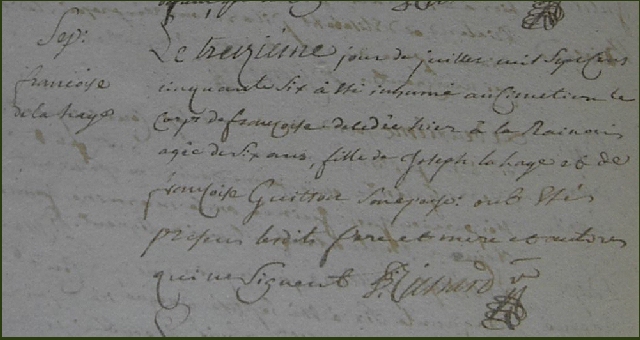 Sep:
francoise
de la haye
Le treizieme jour de juillet mil sept cens
cinquante six à été inhumé au Cimetiere le
corps de françoise decedée hier à la
agée de six ans, fille de Joseph la haye et de
françoise Guitton Ses pere: ont étés
presens lesdits pere et mere et autres
qui ne Signent